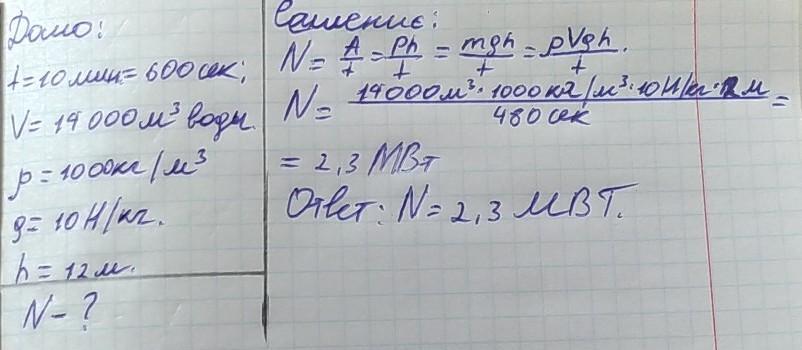 Дано:
t=10мин=600сек;
V=14000м³ воды.
ρ=1000кг/м³
g=10Н/кг.
h=12м.
N-?
Решение:
N=A/t=Ph/t=mgh/t=ρVgh/t.
N=14000м³·1000кг/м³·10Н/кг·12м/480сек=
=2,3МВт
Ответ: N=2,3МВТ.